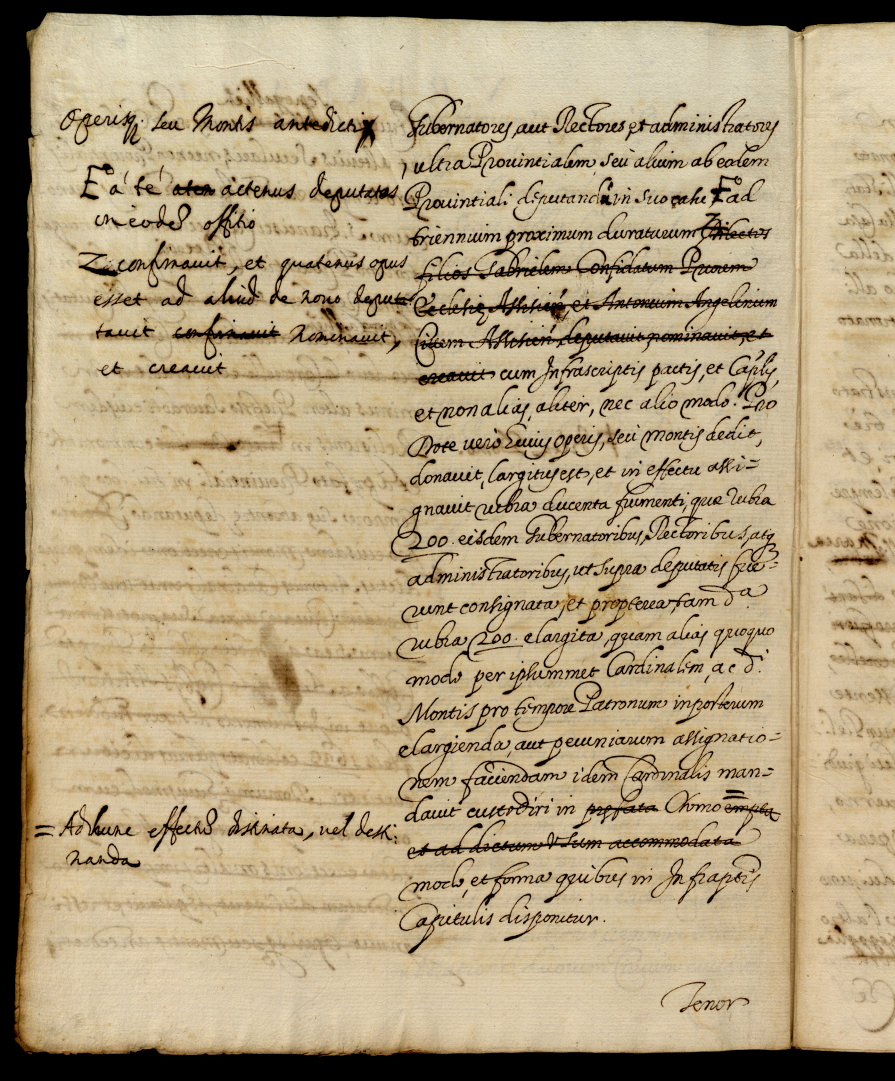 Operisq. seu Montis antedicti
E à se aten actenus deputatas
in eodē offitio
Z confirmavit, et quatenus opus
esset ad aliud de novo deput
tavit confirmavit Nominavit,
et creavit
= Ad hunc effectū destinata, vel desti
nanda
Gubernatores, aut Rectores et administratores
, ultra Provintialem, seu alium ab eodem
Provintiali deputandū in suo casu E ad
triennium proximum duraturum Z Dilectos
filios Gabrielem Confidatum Priorem
Ecclesię Assisień, et Antonium Angelinum
Civem Assisień, deputavit, nominavit, et
creavit cum Infrascriptis pactis, et Caplis,
et non alias, aliter, nec alio modo. Pro
Dote vero huius operis, seu montis dedit,
donavit, largitus est, et in effectu assi=
gnavit rubra ducenta frumenti, quæ rubra
200. eisdem Gubernatoribus, Rectoribus, atq
administratoribus, ut supra deputatis fue=
runt consignata, et propterea tam dᵃ.
rubra 200. elargita, quam alias quoquo
modo per ipsummet Cardinalem, ac dⁱ.
Montis pro tempore Patronum in posterum
elargienda, aut pecuniarum assignatio=
nem faciendam idem Cardinalis man=
davit custodiri in prefata Domo = empta
et ad dictum Usum accommodata
modo, et forma quibus in Infraptis
Capitulis disponitur.
Tenor